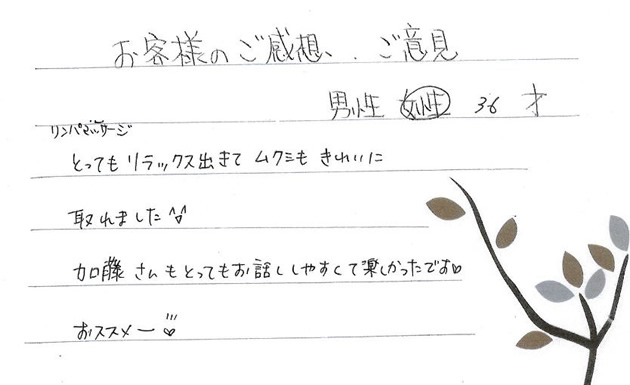 お客様のご感想、ご意見
男性 女性 36 才
リンパマッサージ
とってもリラックス出きて ムクミも きれいに
取れました
加藤さんもとってもお話ししやすくて楽しかったです♡
おススメー